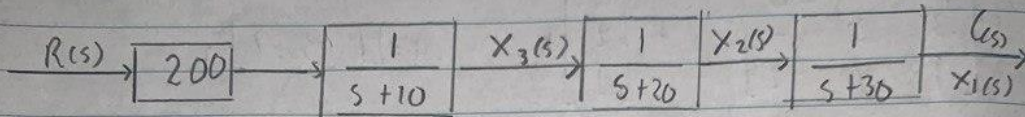 R(s) 200 1/(s+10) X₃(s) 1/(s+20) X₂(s) 1/(s+30) C(s)
X₁(s)